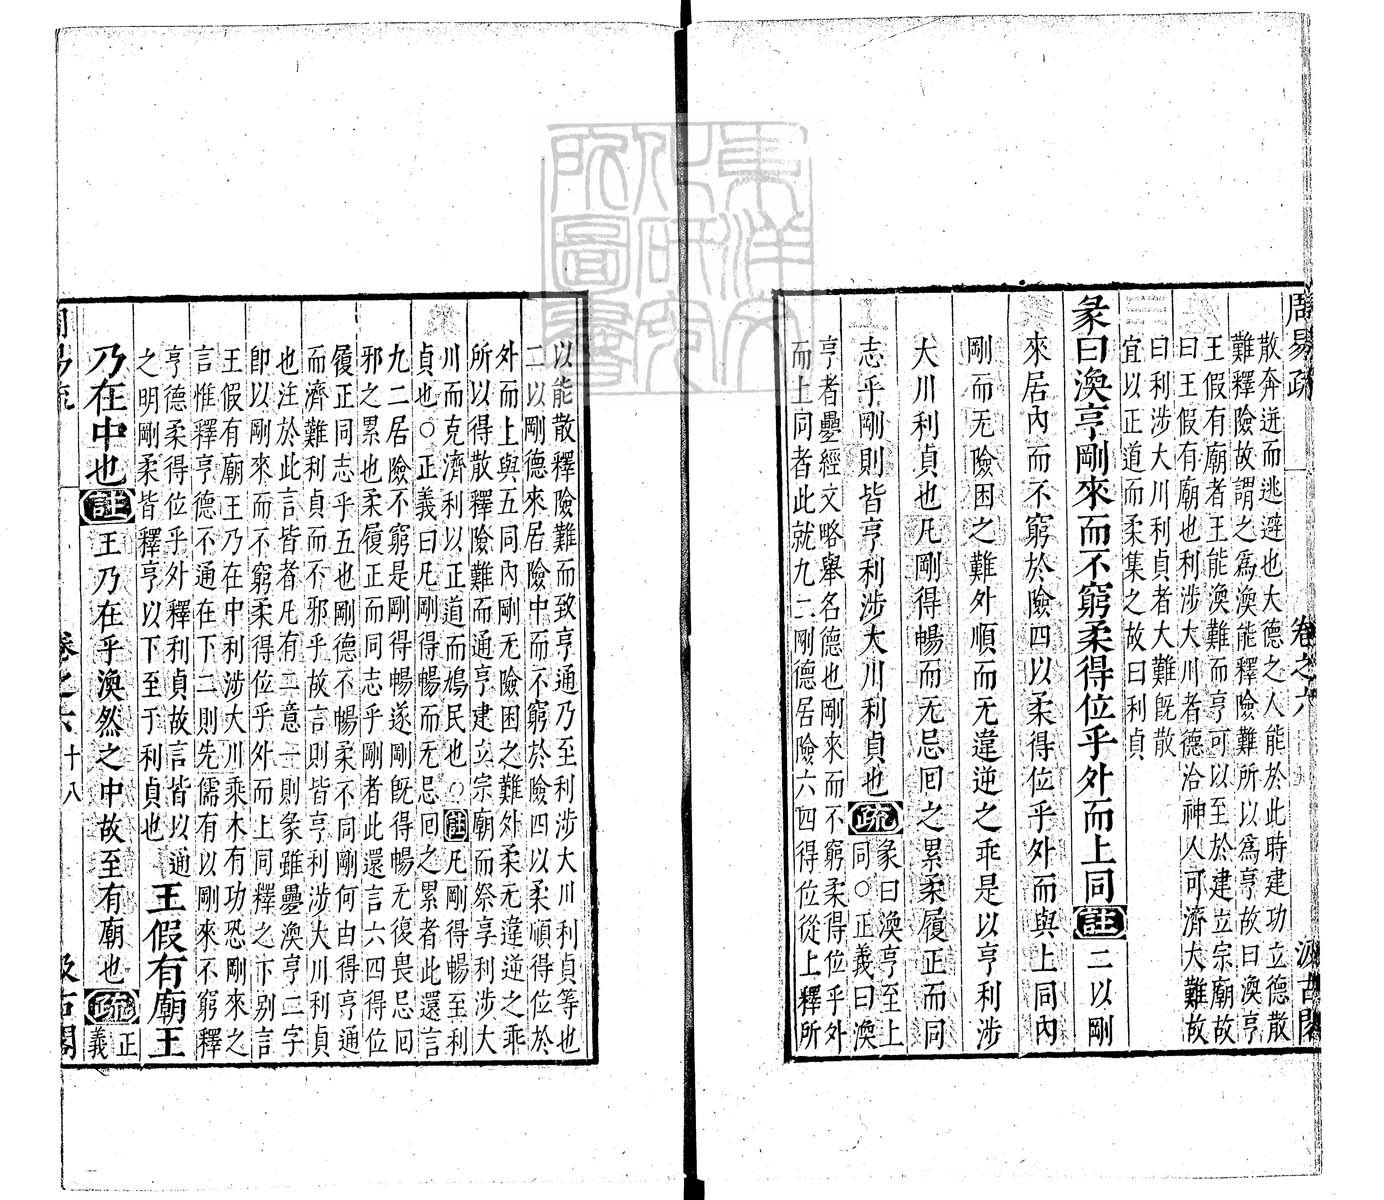 周易疏 卷之六 汲古閣
散奔迸而逃避也大德之人能於此時建功立德散
難釋險故謂之爲渙能釋險難所以爲亨故曰渙亨
王假有廟者王能渙難而亨可以至於建立宗廟故
曰王假有廟也利涉大川者德洽神人可濟大難故
曰利涉大川利貞者大難旣散
宜以正道而柔集之故曰利貞
彖曰渙亨剛來而不窮柔得位乎外而上同註二以剛
來居內而不窮於險四以柔得位乎外而與上同內
剛而无險困之難外順而无違逆之乖是以亨利涉
大川利貞也凡剛得暢而无忌回之累柔履正而同
志乎剛則皆亨利涉大川利貞也疏彖曰渙亨至上
同○正義曰渙
亨者疊經文略舉名德也剛來而不窮柔得位乎外
而上同者此就九二剛德居險六四得位從上釋所
以能散釋險難而致亨通乃至利涉大川利貞等也
二以剛德來居險中而不窮於險四以柔順得位於
外而上與五同內剛无險困之難外柔无違逆之乖
所以得散釋險難而通亨建立宗廟而祭享利涉大
川而克濟利以正道而鳩民也○註凡剛得暢至利
貞也○正義曰凡剛得暢而无忌回之累者此還言
九二居險不窮是剛得暢遂剛旣得暢无復畏忌回
邪之累也柔履正而同志乎剛者此還言六四得位
履正同志乎五也剛德不暢柔不同剛何由得亨通
而濟難利貞而不邪乎故言則皆亨利涉大川利貞
也注於此言皆者凡有二意一則彖雖疊渙亨二字
卽以剛來而不窮柔得位乎外而上同釋之下別言
王假有廟王乃在中利涉大川乘木有功恐剛來之
言惟釋亨德不通在下二則先儒有以剛來不窮釋
亨德柔得位乎外釋利貞故言皆以通
之明剛柔皆釋亨以下至于利貞也王假有廟王
乃在中也註王乃在乎渙然之中故至有廟也疏正
義
周易疏 卷之六 十八 汲古閣
東洋文化研究所圖書